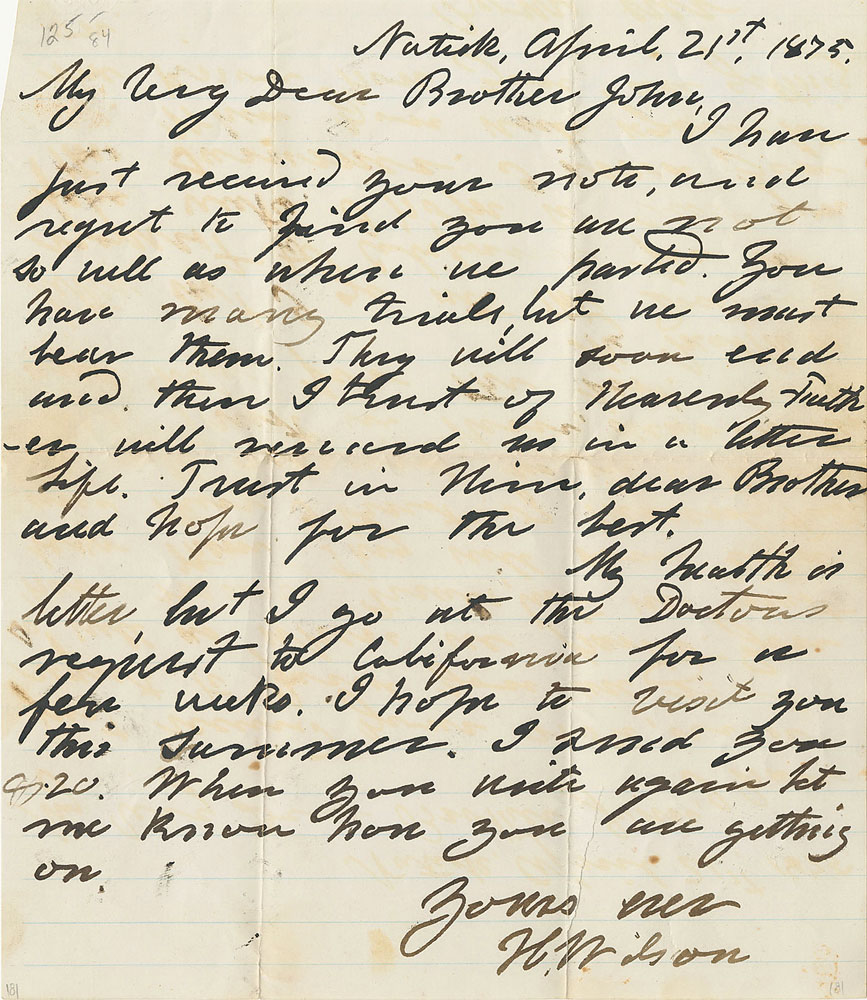 125/84
Natick, April. 21st, 1875.
My Very Dear Brother John,
I have
just received your note, and
regret to find you are not
so well as when we parted. You
have many trials, but we must
bear them. They will soon end
and then I trust of Heavenly Fath
-er will reward us in a better
Life. Trust in Him, dear Brother
and hope for the best.
My health is
better, but I go at the Doctors
request to California for a
few weeks. I hope to visit you
this summer. I send you
$20. When you write again let
me know how you are getting
on.
Yours ever
H. Wilson